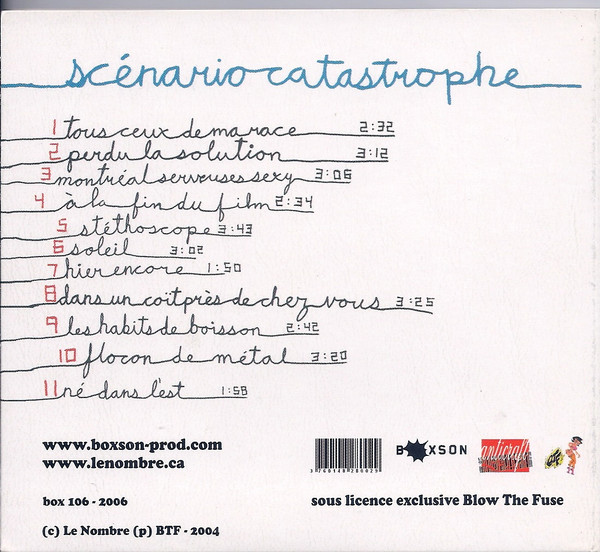 scénario catastrophe
1 tous ceux de ma race 2:32
2 perdu la solution 3:12
3 montréal serveuses sexy 3:06
4 à la fin du film 2:34
5 stéthoscope 3:43
6 soleil 3:02
7 hier encore 1:50
8 dans un coït près de chez vous 3:25
9 les habits de boisson 2:42
10 flocon de métal 3:20
11 né dans l'est 1:58
www.boxson-prod.com
www.lenombre.ca
BOXSON
anticraft
box 106 - 2006
sous licence exclusive Blow The Fuse
(c) Le Nombre (p) BTF - 2004